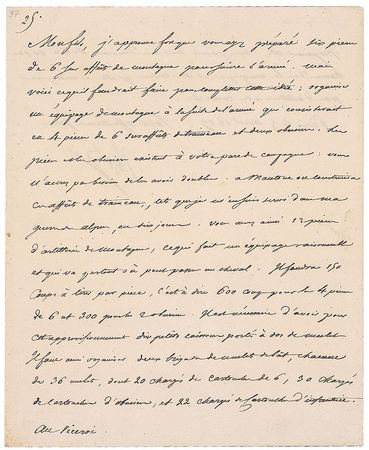 37
25.
Mon fils, j'apprens que vous avez préparé six pieces
de 6 sur affuts de montagne pour suivre l'armée. mais
voici ce qu'il faudrait faire pour completter cette idée; organiser
un équipage de montagne à la suite de l'armée qui consisterait
en 4 pieces de 6 sur affuts de traineau et deux obusiers. Les
pieces et les obusiers existent à votre parc de campagne: vous
n'aurez pas besoin de les avoir doubles. a Mantoue on construira
ces affuts de traineau, tels que je m'en suis servi dans ma
guerre des alpes, en dix jours. vous aurez ainsi 12 pieces
d'artillerie de montagne, ce qui fait un équipage raisonnable
et qui va partout où peut passer un cheval. Il faudra 150
coups à tirer par piece, c'est à dire 600 coups pour les 4 pieces
de 6 et 300 pour les 2 obusiers. Il est nécessaire d'avoir pour
cet approvisionnement des petits caissons portés à dos de mulet
Il faut aussi organiser deux brigades de mulets de bât, chacune
de 36 mulets, dont 20 chargés de cartouches de 6, 30 chargés
de cartouches d'obusier, et 22 chargés de cartouches d'infanterie.
Au Viceroi